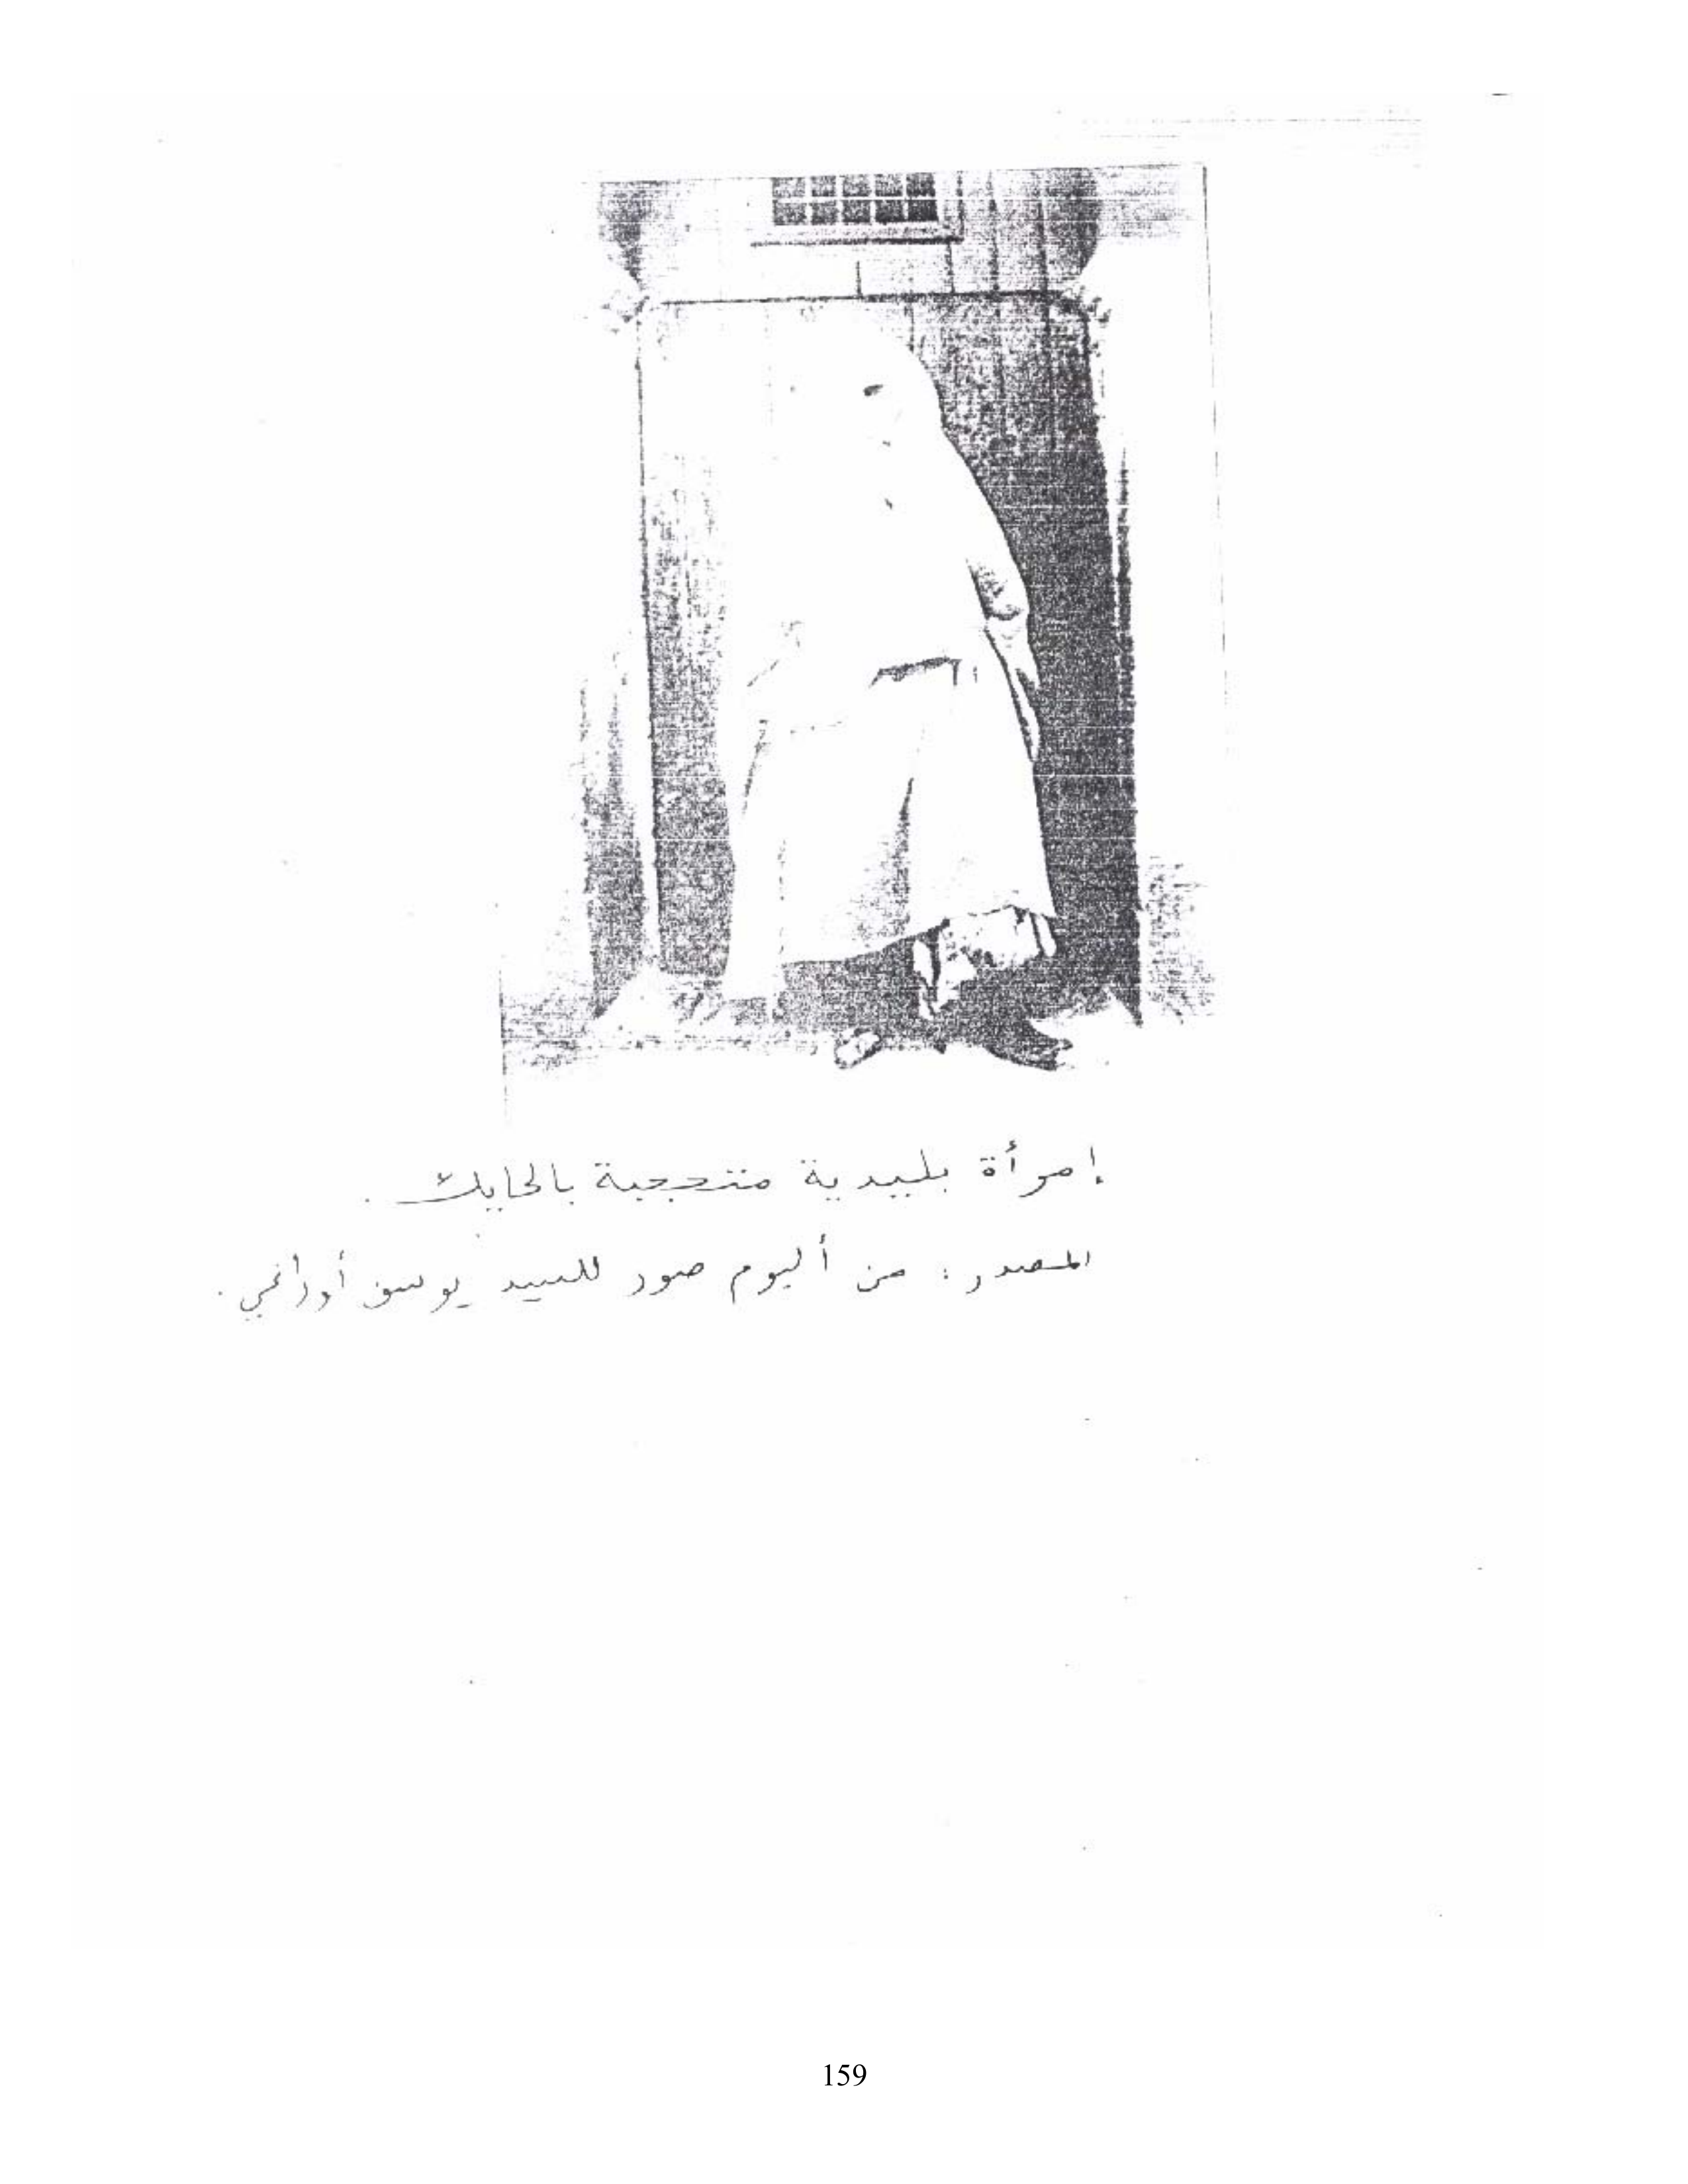 إمرأة بليدية متحجبة بالحايك .
المصدر : من ألبوم صور للسيد يوسف أوراغي .
159